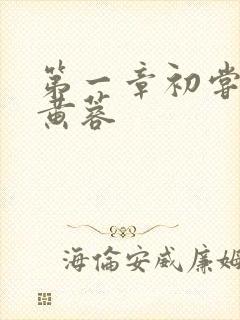 第一章初嘗
黄蓉
海倫安威廉姆